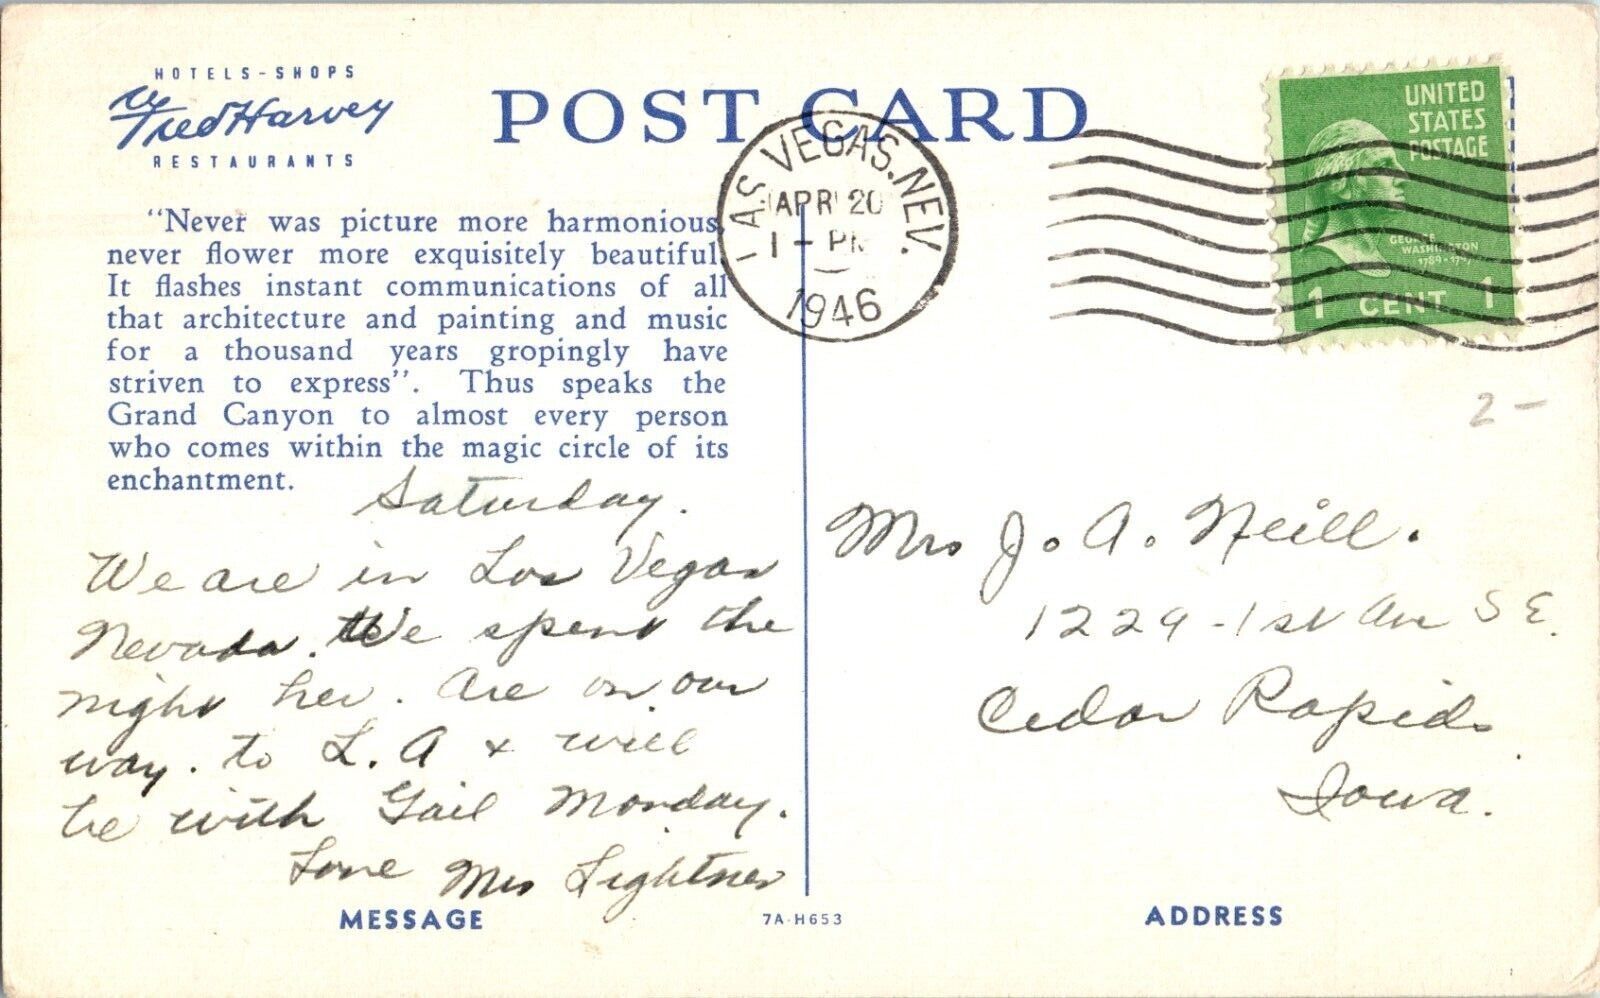 HOTELS-SHOPS
Fred Harvey
RESTAURANTS
POST CARD
LAS VEGAS. NEV.
APR 20
1 - PM
1946
UNITED
STATES
POSTAGE
GEORGE
WASHINGTON
1789-1797
1 CENT 1
"Never was picture more harmonious,
never flower more exquisitely beautiful.
It flashes instant communications of all
that architecture and painting and music
for a thousand years gropingly have
striven to express". Thus speaks the
Grand Canyon to almost every person
who comes within the magic circle of its
enchantment.
2 -
Saturday.
We are in Los Vegas
Nevada. We spent the
night her. Are on our
way. to L.A + will
be with Gail Monday.
Love Mrs Lightner
Mrs J. A. Neill.
1229 - 1st Ave S E.
Cedar Rapids
Iowa.
MESSAGE
7A-H653
ADDRESS